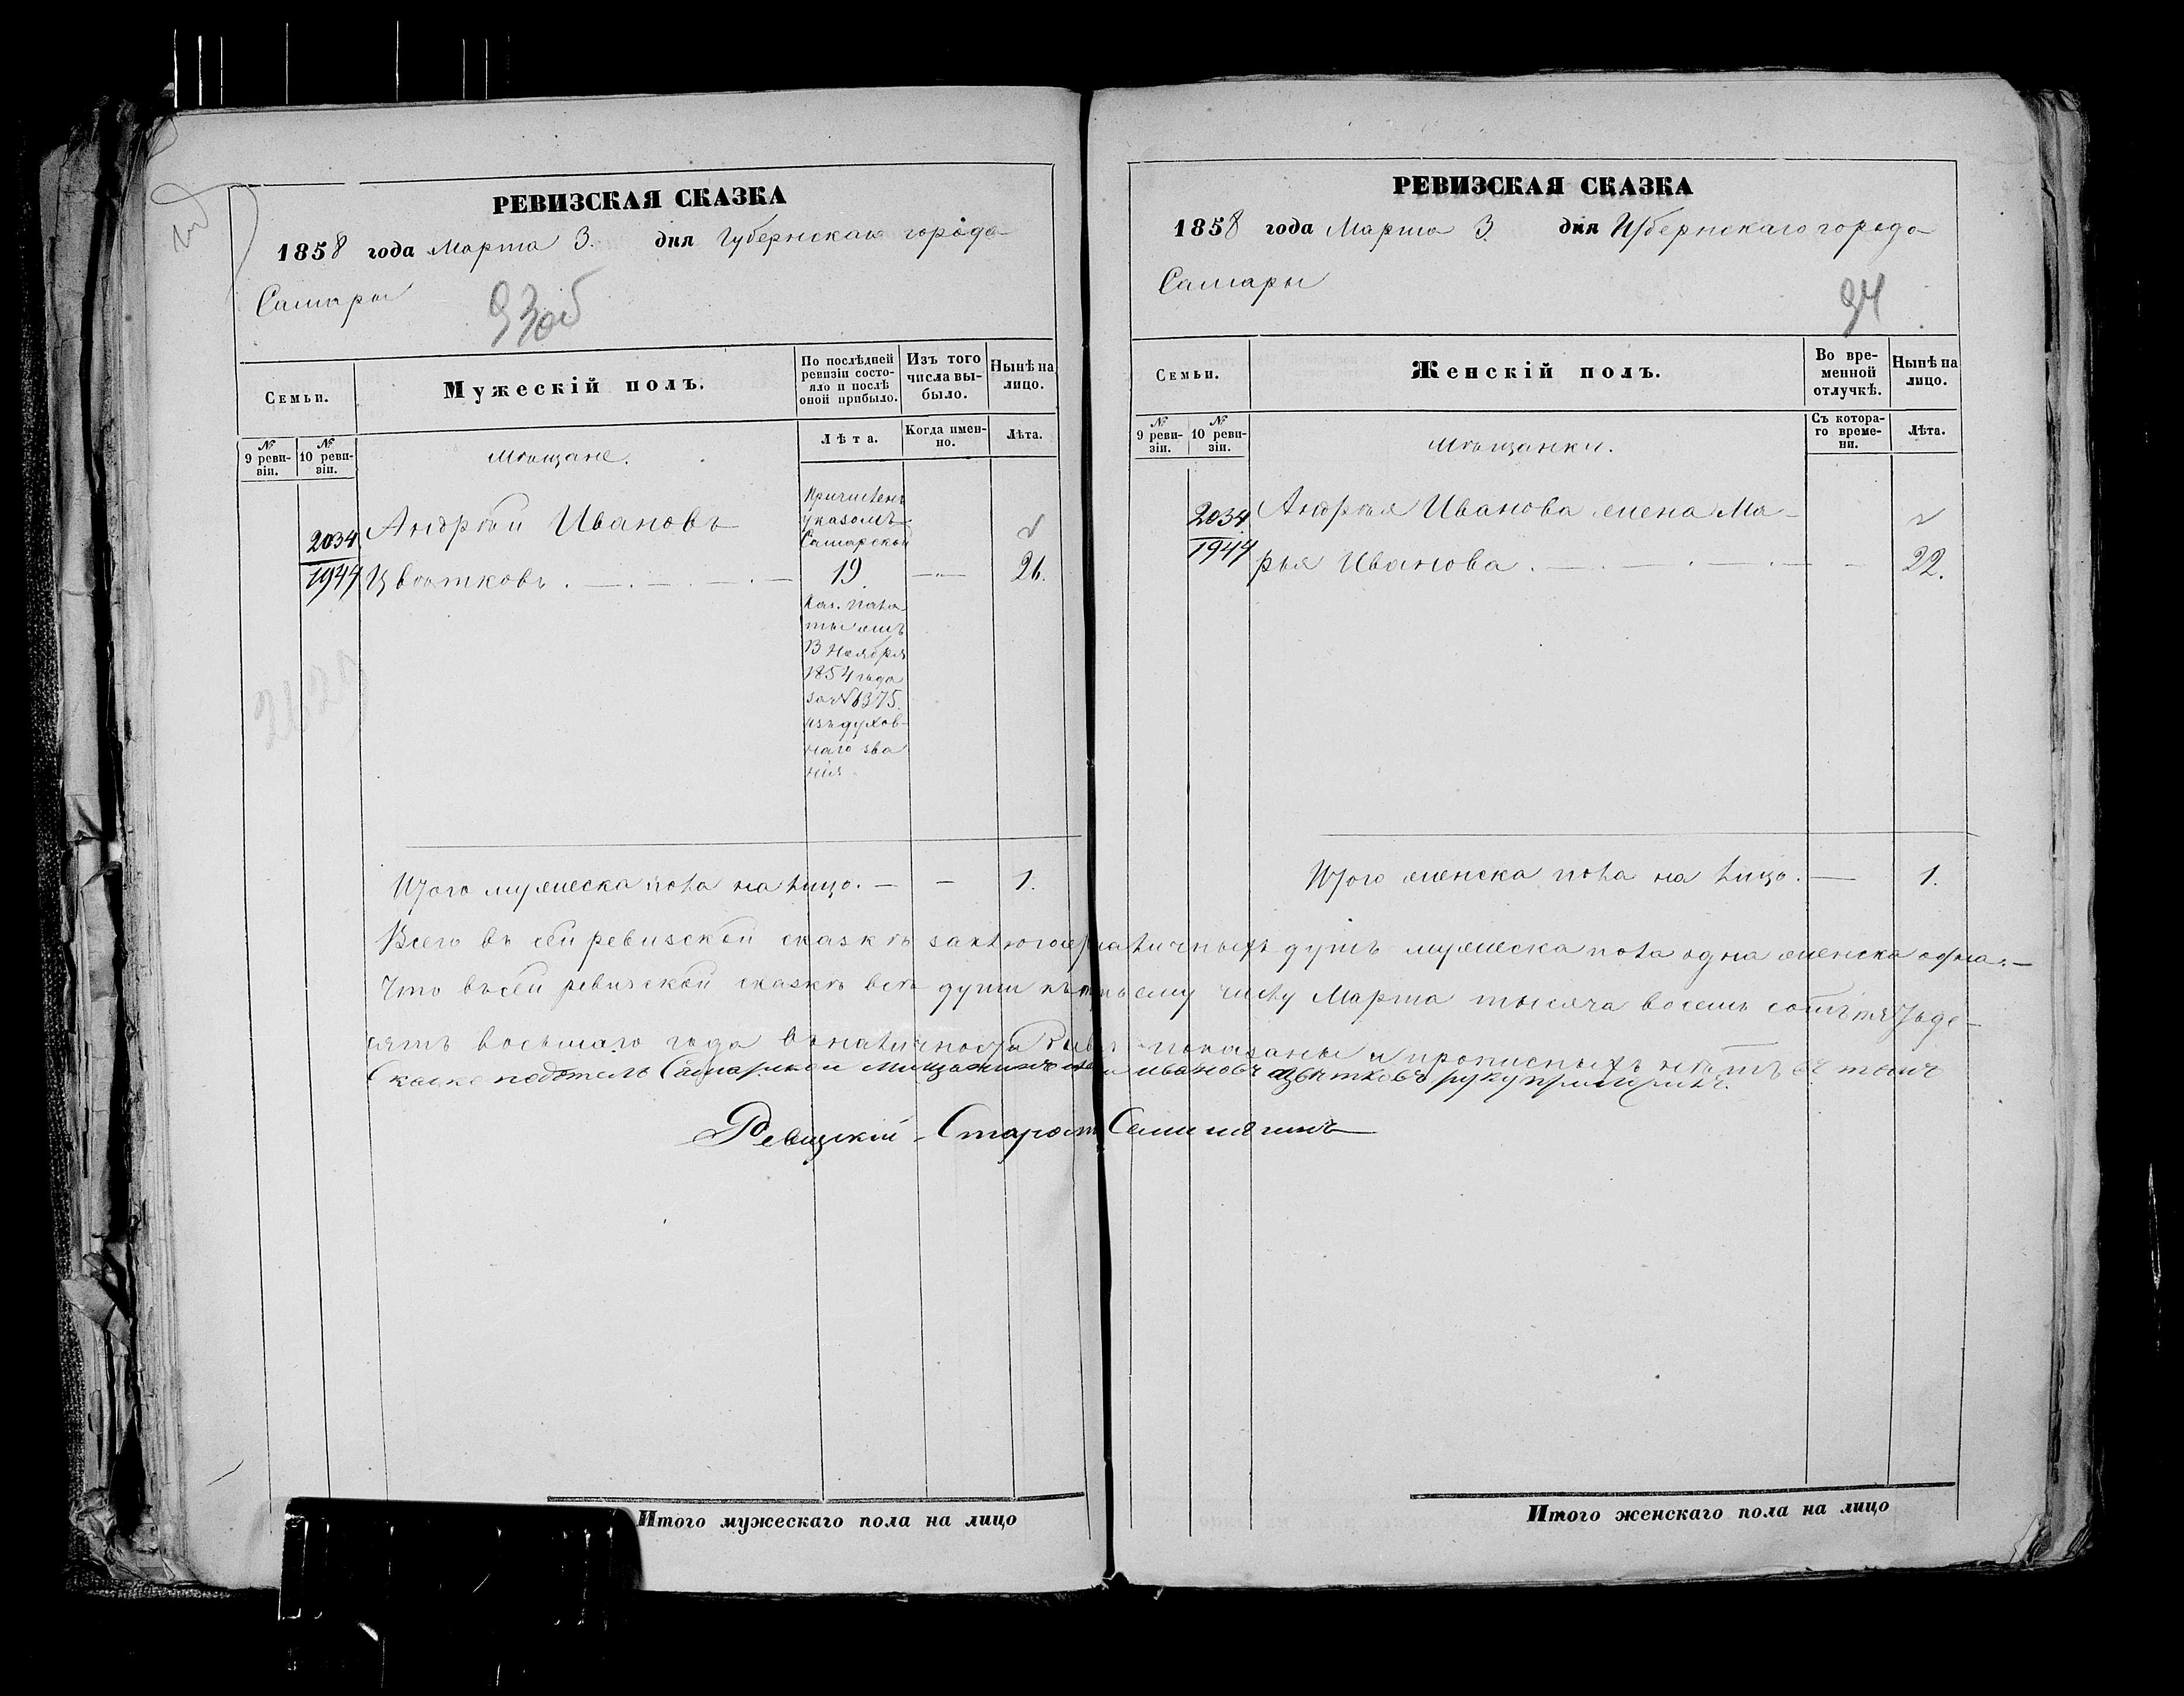 РЕВИЗСКАЯ СКАЗКА
1858 года Марта 3. дня Губернскаго города
Самары
93об
Семьи.
Мужескій полъ.
По послѣдней ревизіи состо-
яло и послѣ оной прибыло.
Изъ того числа вы-
было.
Нынѣ на лицо.
№ 9 реви-
зіи.
№ 10 реви-
зіи.
мѣщане.
Лѣта.
Когда имен-
но.
Лѣта.
2034
1944
Андрей Ивановъ
Цвѣтковъ . — . — . — . —
Причисленъ
указомъ
Самарской
19
Каз. Пала-
ты отъ
13 Ноября
1854 года
за № 6375.
изъ духов-
наго зва
нія.
—"—
26.
Итого мужеска пола на лицо. — — 1.
РЕВИЗСКАЯ СКАЗКА
1858 года Марта 3. дня Губернскаго города
Самары
94
Семьи.
Женскій полъ.
Во вре-
менной
отлучкѣ.
Нынѣ на
лицо.
№ 9 реви-
зіи.
№ 10 реви-
зіи.
мѣщанки.
Съ котора-
го време-
ни.
Лѣта.
2034
1944
Андрея Иванова жена Ма-
рья Иванова . — . — . — . — —
22.
Итого женска пола на лицо. — 1.
Всего въ сей ревизской сказкѣ заключается наличныхъ душъ мужеска пола одна женска одна. —
Что въ сей ревизской сказкѣ всѣ души къ третьему числу Марта тысяча восемь сотъ пятьде-
сятъ восьмаго года въ наличности показаны и прописныхъ нѣтъ въ томъ
Скаске подотель Самарской мищанинъ ивановъ Цвѣтковъ руку приложилъ.
Ревизскій Староста
Итого мужескаго пола на лицо
Итого женскаго пола на лицо